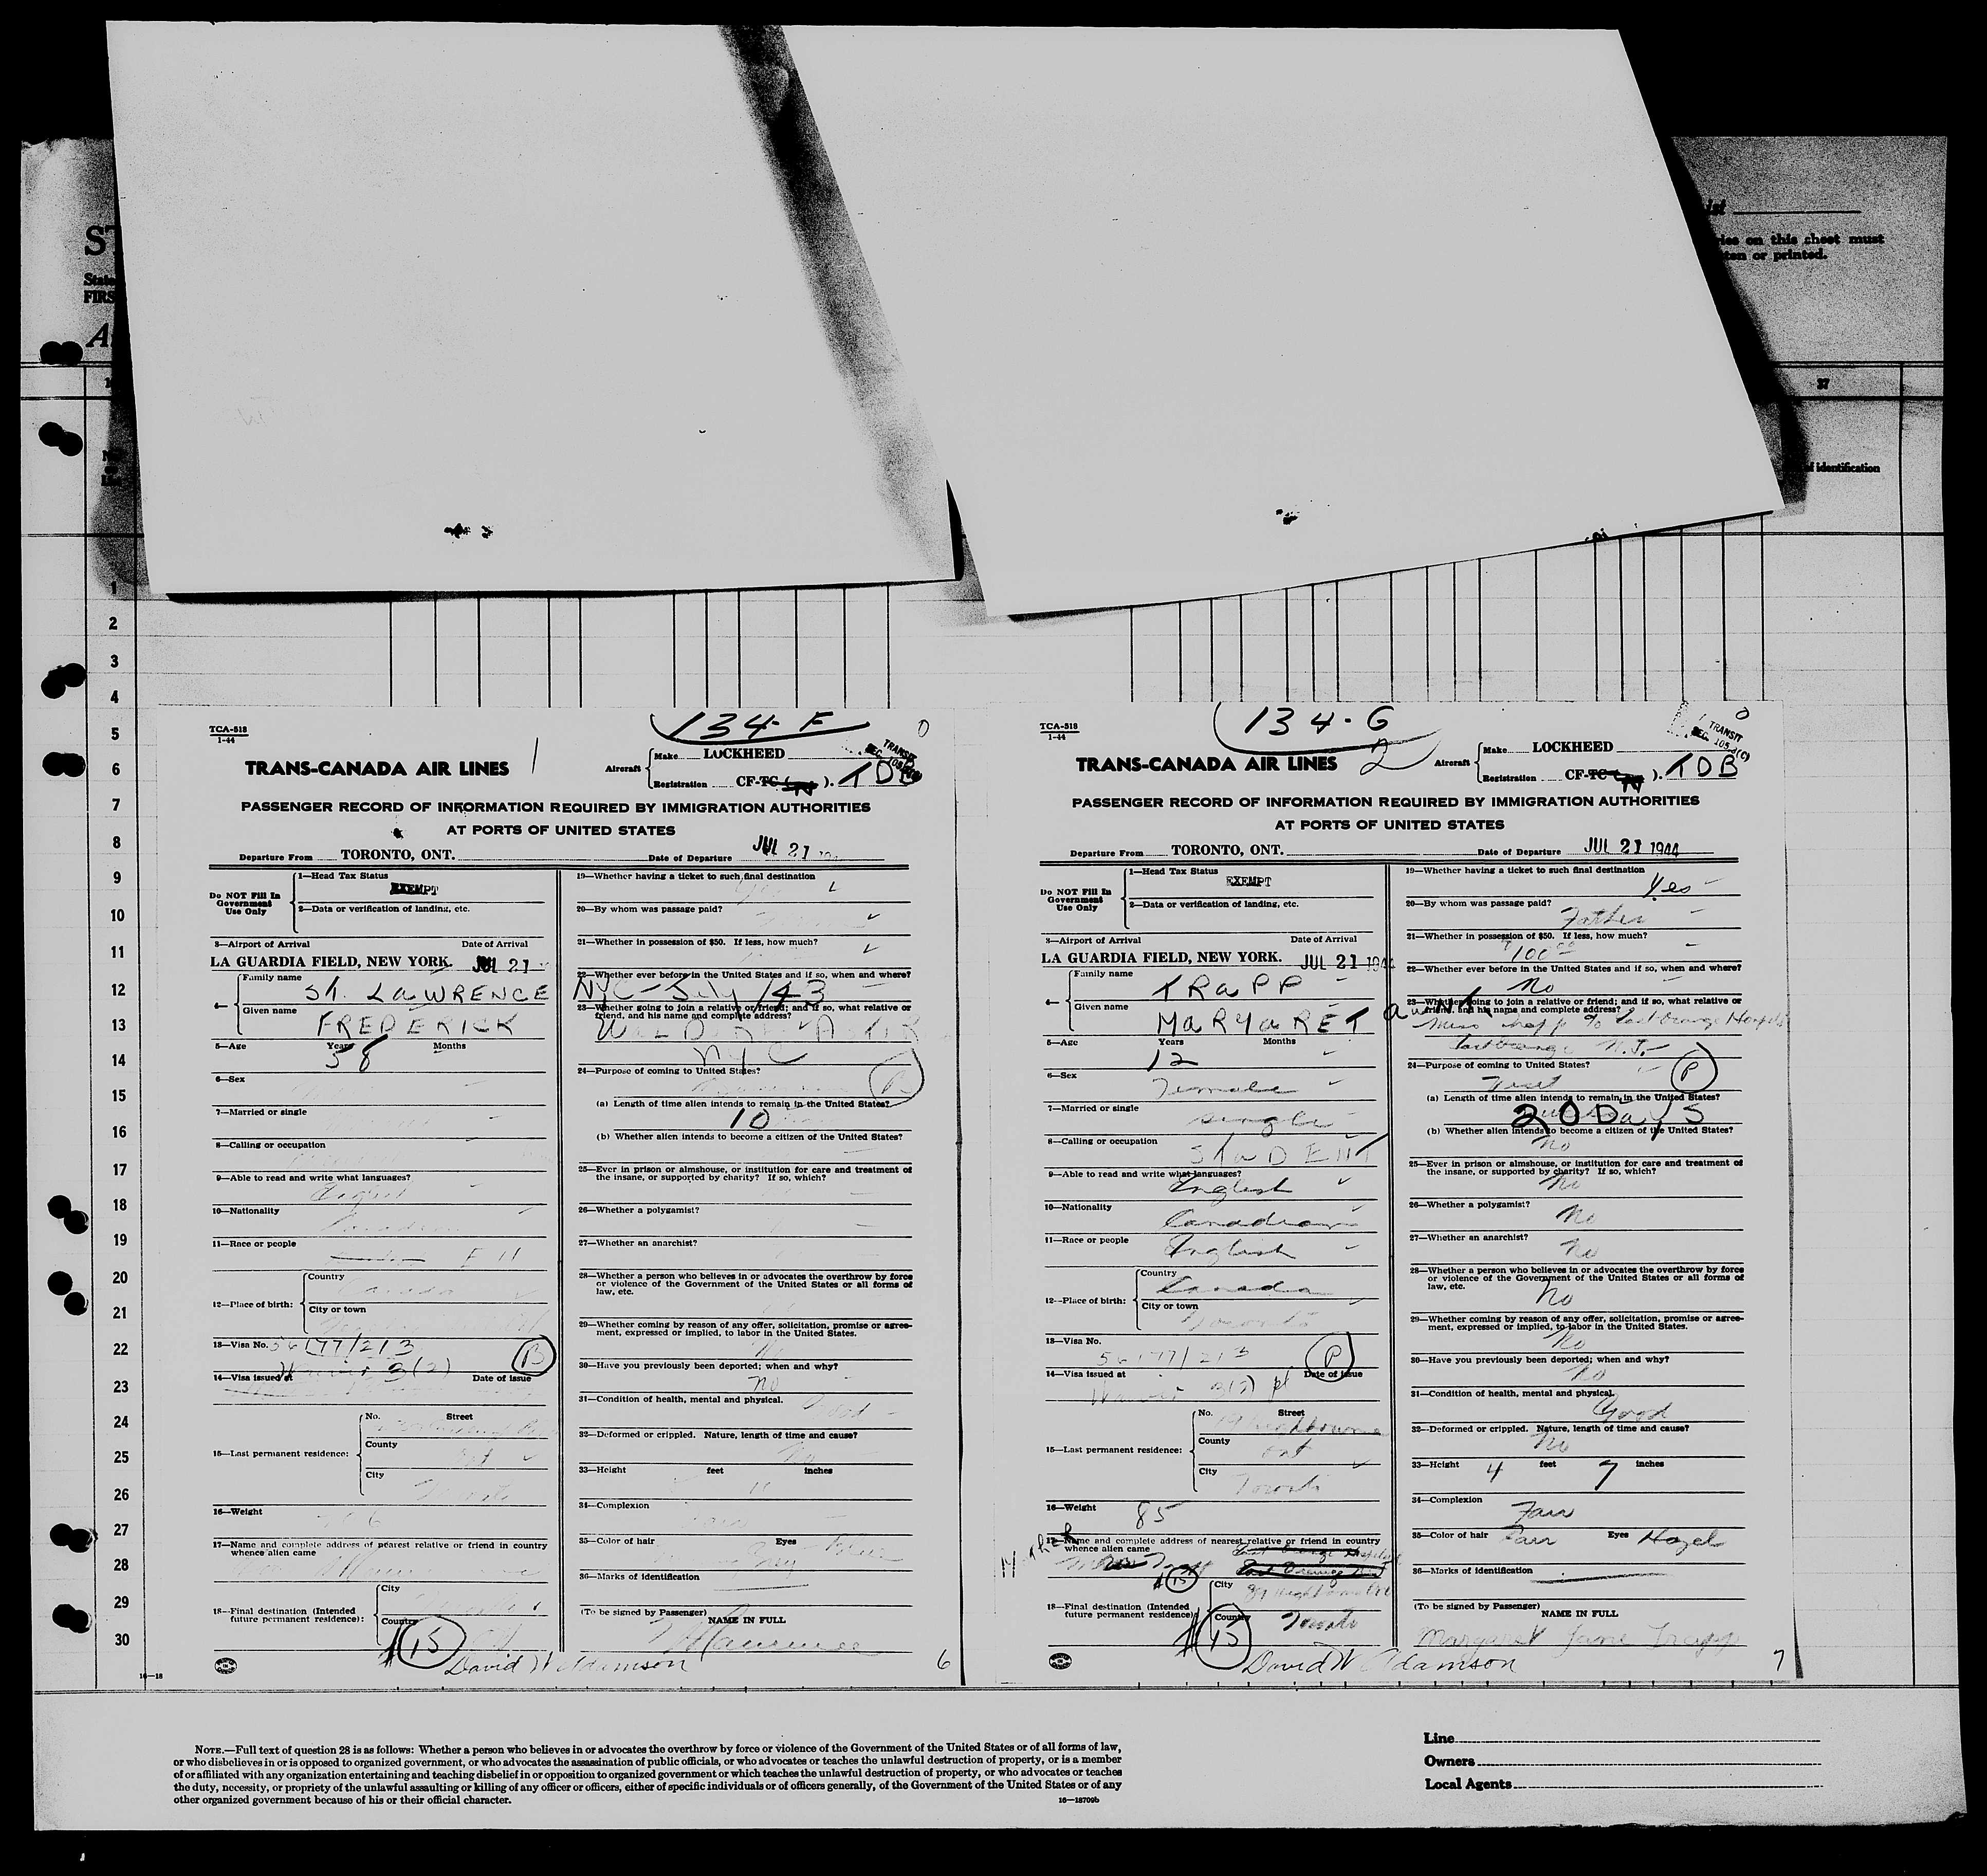 on this sheet must
or printed.
37
of identification
1
2
3
4
5
6
7
8
9
10
11
12
13
14
15
16
17
18
19
20
21
22
23
24
25
26
27
28
29
30
134-F
TCA-518
1-44
TRANS-CANADA AIR LINES 1
Aircraft
Make LOCKHEED
Registration CF-TC ( ). TDB
TRANSIT
PASSENGER RECORD OF INFORMATION REQUIRED BY IMMIGRATION AUTHORITIES
AT PORTS OF UNITED STATES
Departure From TORONTO, ONT. Date of Departure JUL 21
Do NOT Fill In Government Use Only
1—Head Tax Status
EXEMPT
2—Data or verification of landing, etc.
3—Airport of Arrival Date of Arrival
LA GUARDIA FIELD, NEW YORK. JUL 21
4— Family name St. LAWRENCE
Given name FREDERICK
5—Age Years 58 Months
6—Sex
7—Married or single
8—Calling or occupation
9—Able to read and write what languages?
English
10—Nationality
Canadian
11—Race or people
12—Place of birth:
Country
Canada
City or town
13—Visa No. 56177/213
14—Visa issued at 3(2) Date of issue
15—Last permanent residence:
No. Street
County
City
16—Weight
17—Name and complete address of nearest relative or friend in country whence alien came
18—Final destination (Intended future permanent residence):
City
Country
$15
David W Adamson
19—Whether having a ticket to such final destination
20—By whom was passage paid?
21—Whether in possession of $50. If less, how much?
22—Whether ever before in the United States and if so, when and where?
NYC - July /43
23—Whether going to join a relative or friend; and if so, what relative or friend, and his name and complete address?
NYC
24—Purpose of coming to United States?
(a) Length of time alien intends to remain in the United States?
10
(b) Whether alien intends to become a citizen of the United States?
25—Ever in prison or almshouse, or institution for care and treatment of the insane, or supported by charity? If so, which?
26—Whether a polygamist?
27—Whether an anarchist?
28—Whether a person who believes in or advocates the overthrow by force or violence of the Government of the United States or all forms of law, etc.
29—Whether coming by reason of any offer, solicitation, promise or agreement, expressed or implied, to labor in the United States.
No
30—Have you previously been deported; when and why?
No
31—Condition of health, mental and physical.
Good
32—Deformed or crippled. Nature, length of time and cause?
No
33—Height feet inches
34—Complexion
35—Color of hair Grey Eyes
36—Marks of identification
(To be signed by Passenger)
NAME IN FULL
6
134-G
TCA-518
1-44
TRANS-CANADA AIR LINES 2
Aircraft
Make LOCKHEED
Registration CF-TC ( ). TDB
TRANSIT
PASSENGER RECORD OF INFORMATION REQUIRED BY IMMIGRATION AUTHORITIES
AT PORTS OF UNITED STATES
Departure From TORONTO, ONT. Date of Departure JUL 21 1944
Do NOT Fill In Government Use Only
1—Head Tax Status
EXEMPT
2—Data or verification of landing, etc.
3—Airport of Arrival Date of Arrival
LA GUARDIA FIELD, NEW YORK. JUL 21 1944
4— Family name TRAPP
Given name MARGARET
5—Age Years 12 Months
6—Sex
Female
7—Married or single
single
8—Calling or occupation
STUDENT
9—Able to read and write what languages?
English
10—Nationality
Canadian
11—Race or people
English
12—Place of birth:
Country
Canada
City or town
Toronto
13—Visa No.
56177/213
P
14—Visa issued at Date of issue
3(2) pt
15—Last permanent residence:
No. Street
County
Ont
City
Toronto
16—Weight 85
17—Name and complete address of nearest relative or friend in country whence alien came
Mother
Trapp
18—Final destination (Intended future permanent residence):
City
Country
Toronto
$15
David W Adamson
19—Whether having a ticket to such final destination
Yes
20—By whom was passage paid?
Father
21—Whether in possession of $50. If less, how much?
100
22—Whether ever before in the United States and if so, when and where?
No
23—Whether going to join a relative or friend; and if so, what relative or friend, and his name and complete address?
aunt
Miss Trapp % East Orange Hospital
East Orange N.J.
24—Purpose of coming to United States?
Visit
P
(a) Length of time alien intends to remain in the United States?
20 Days
(b) Whether alien intends to become a citizen of the United States?
No
25—Ever in prison or almshouse, or institution for care and treatment of the insane, or supported by charity? If so, which?
No
26—Whether a polygamist?
No
27—Whether an anarchist?
No
28—Whether a person who believes in or advocates the overthrow by force or violence of the Government of the United States or all forms of law, etc.
No
29—Whether coming by reason of any offer, solicitation, promise or agreement, expressed or implied, to labor in the United States.
No
30—Have you previously been deported; when and why?
No
31—Condition of health, mental and physical.
Good
32—Deformed or crippled. Nature, length of time and cause?
No
33—Height 4 feet 7 inches
34—Complexion
Fair
35—Color of hair Fair Eyes Hazel
36—Marks of identification
(To be signed by Passenger)
NAME IN FULL
Margaret Jane Trapp
7
16—18
NOTE.—Full text of question 28 is as follows: Whether a person who believes in or advocates the overthrow by force or violence of the Government of the United States or of all forms of law,
or who disbelieves in or is opposed to organized government, or who advocates the assassination of public officials, or who advocates or teaches the unlawful destruction of property, or is a member
of or affiliated with any organization entertaining and teaching disbelief in or opposition to organized government or which teaches the unlawful destruction of property, or who advocates or teaches
the duty, necessity, or propriety of the unlawful assaulting or killing of any officer or officers, either of specific individuals or of officers generally, of the Government of the United States or of any
other organized government because of his or their official character.
16—18709b
Line
Owners
Local Agents